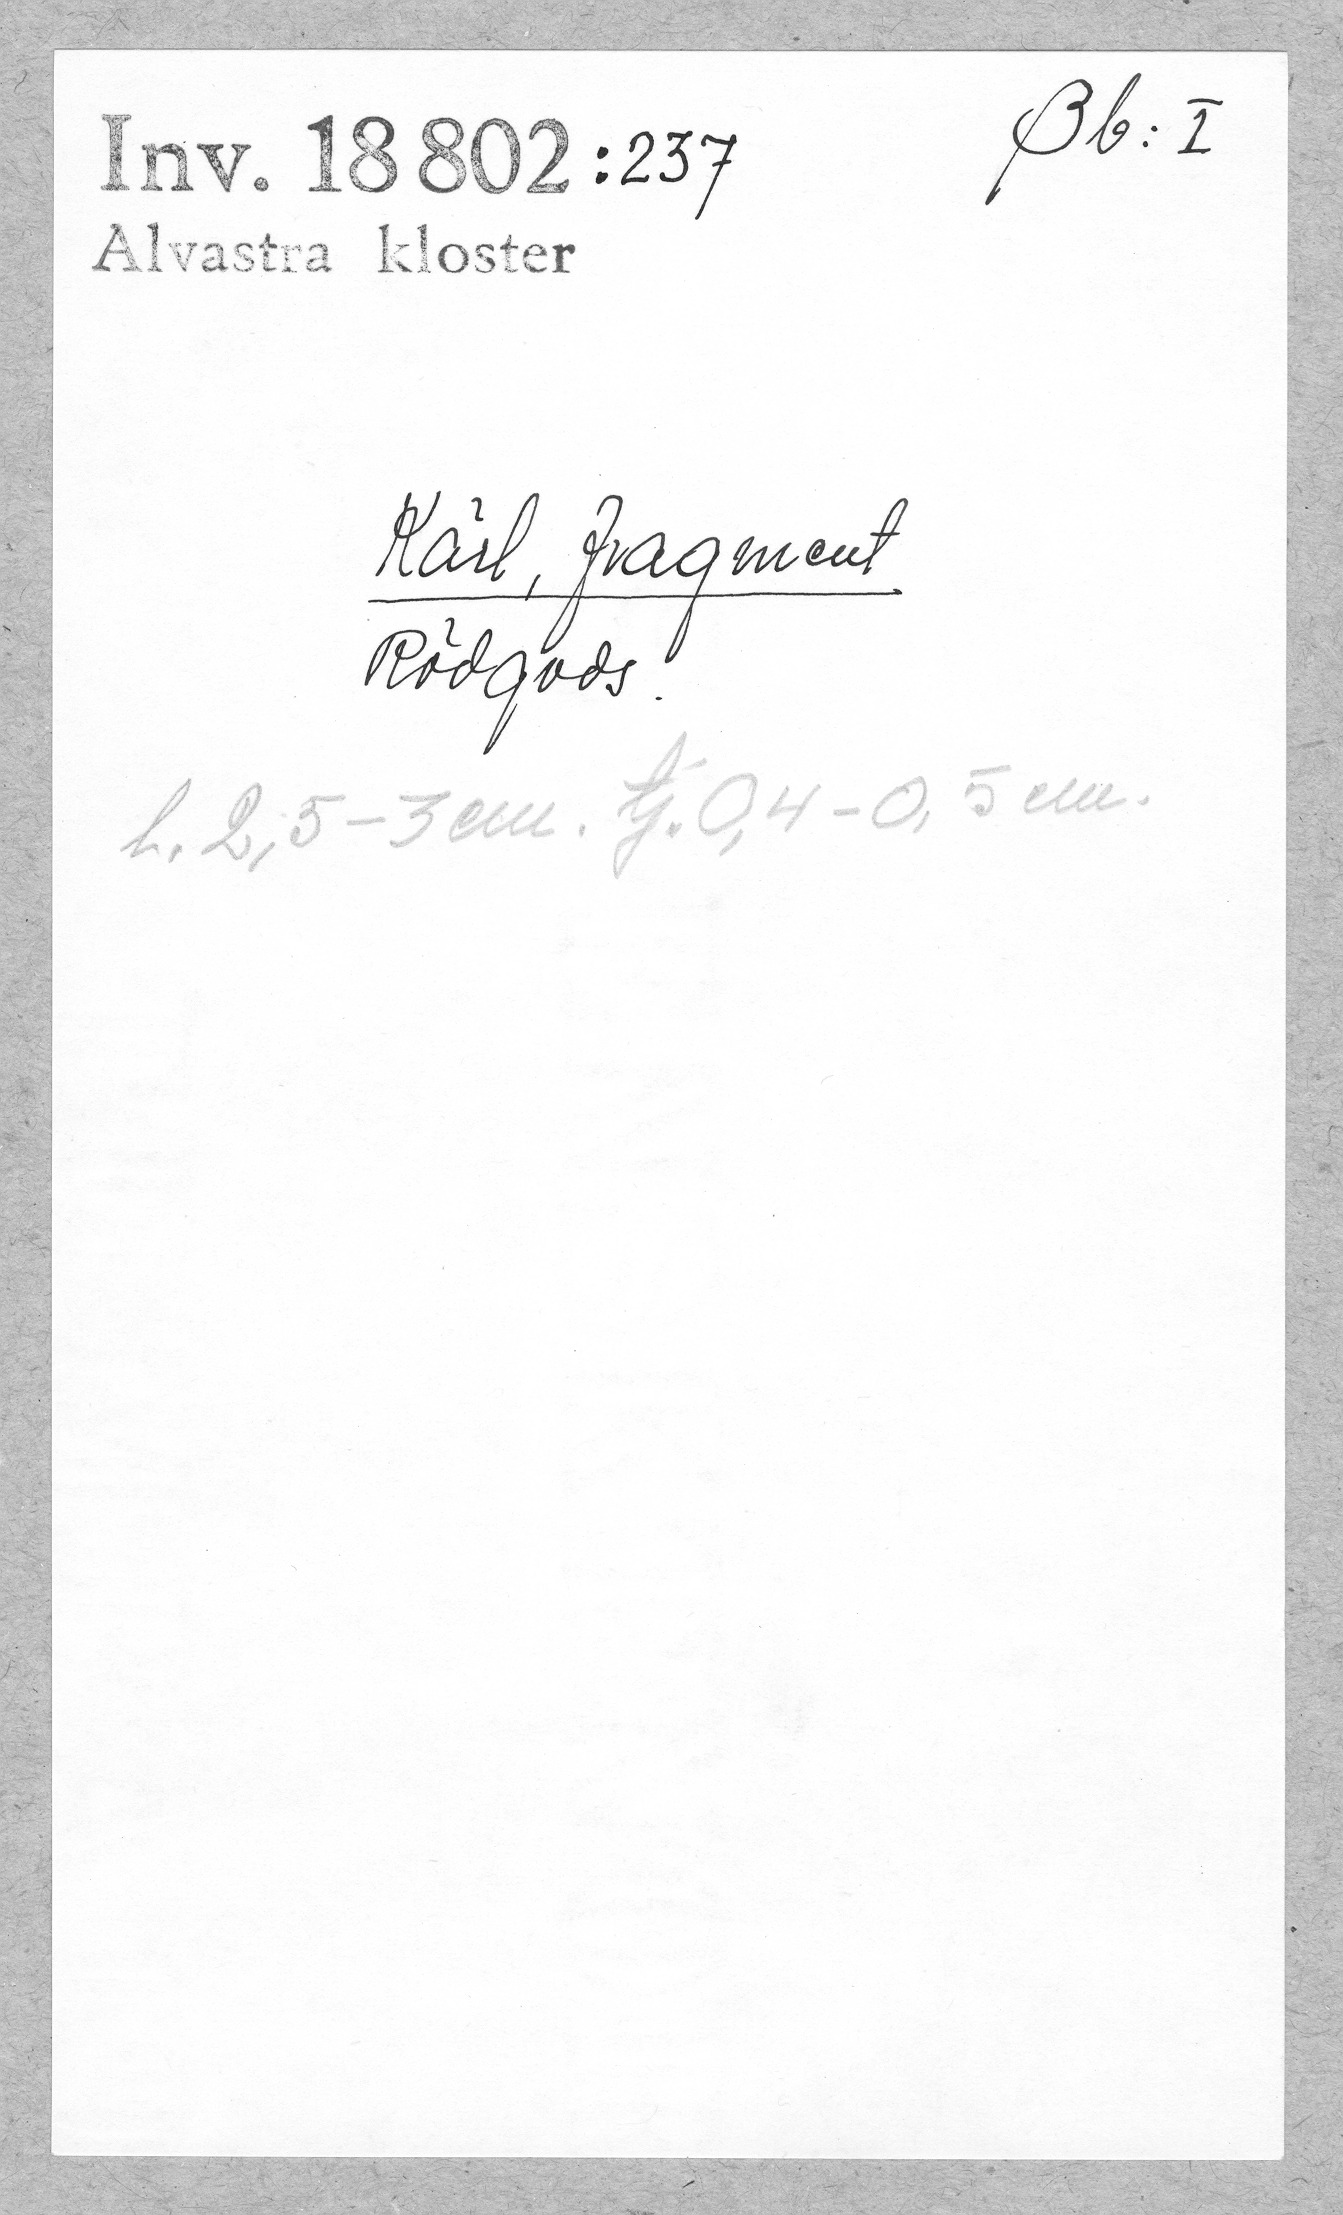 Inv. 18 802 :237
βb: I
Alvastra kloster
Kärl, fragment
Rödgods.
h. 2,5-3 cm. tj. 0,4-0,5 cm.